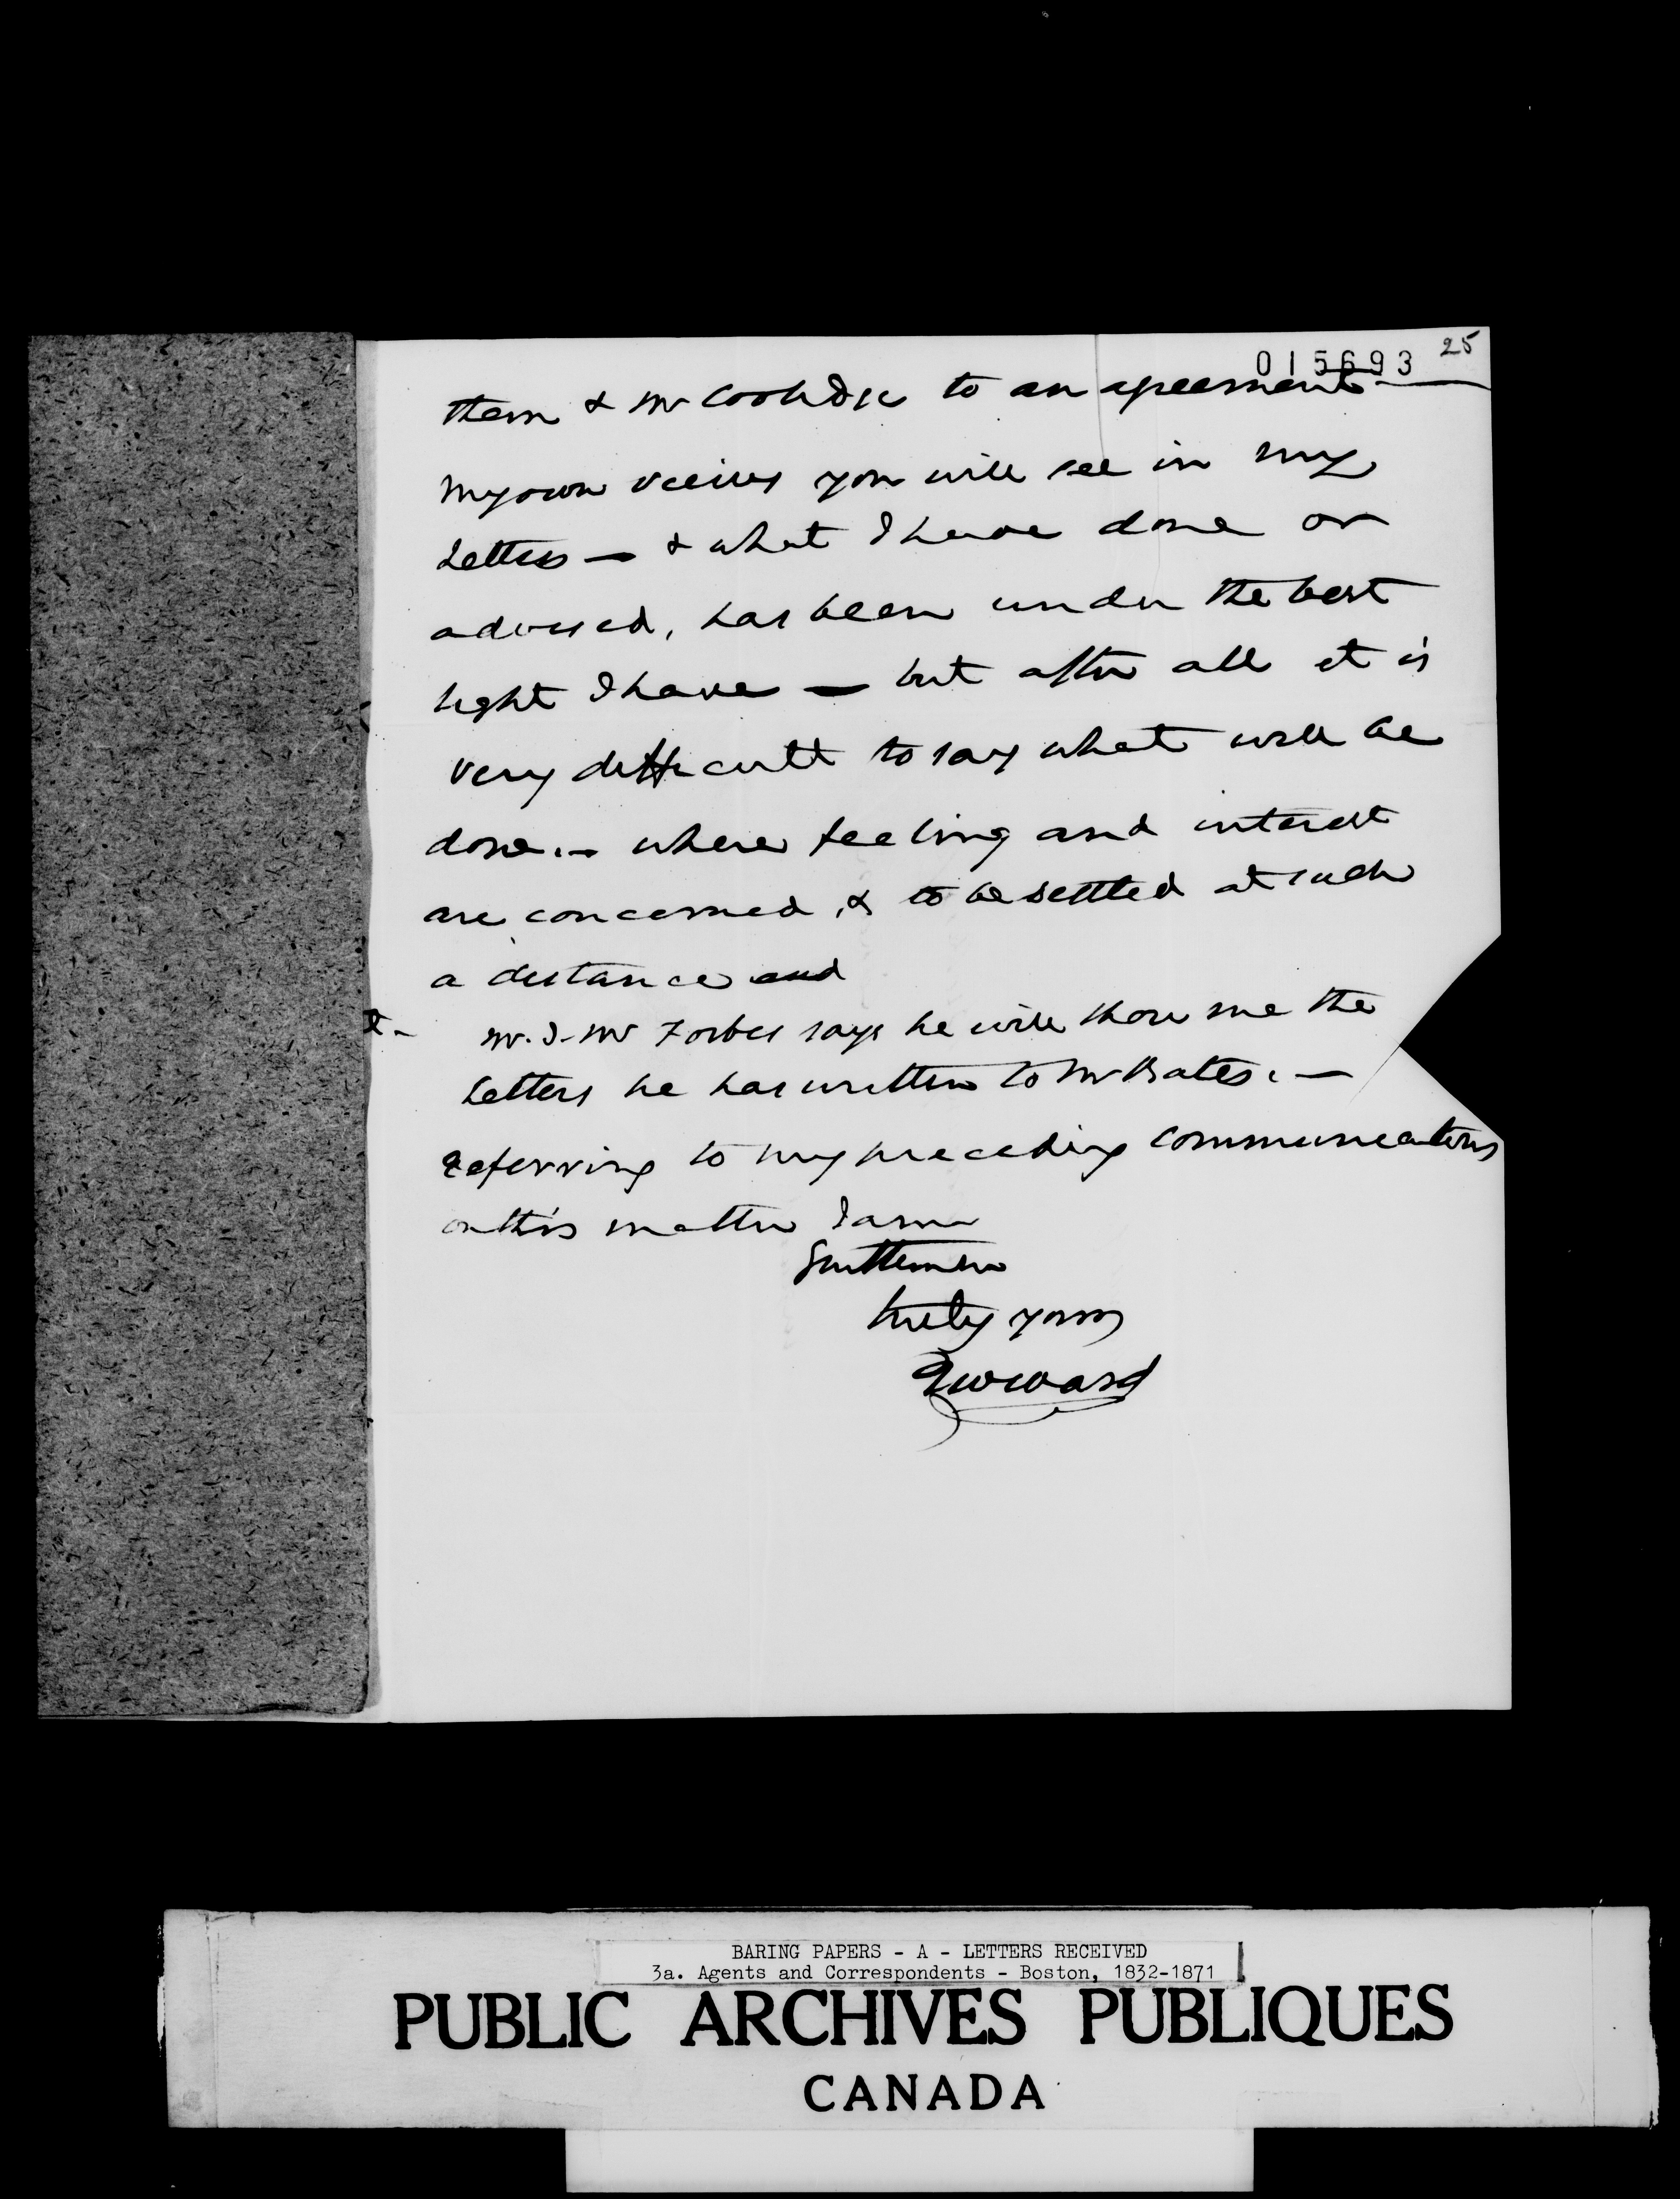 015693 25
them & Mr Coolidge to an agreement —
My own views you will see in my
Letters — & what I have done or
advised, has been under the best
light I have — but after all it is
very difficult to say what will be
done. — where feeling and interest
are concerned, & to be settled at such
a distance and
Mr. J. M Forbes says he will show me the
Letters he has written to Mr Bates. —
Referring to my preceding communications
on this matter I am
Gentlemen
truly yours
T W Ward
BARING PAPERS - A - LETTERS RECEIVED
3a. Agents and Correspondents - Boston, 1832-1871
PUBLIC ARCHIVES PUBLIQUES
CANADA